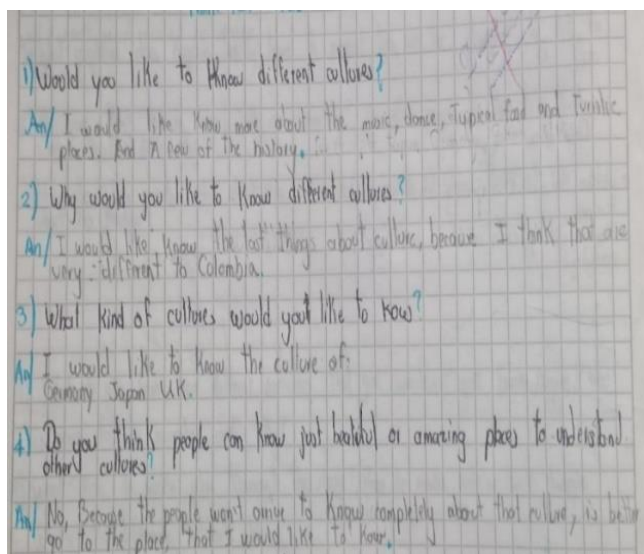 1) Would you like to Know different cultures?
An/ I would like Know more about the music, dance, Typical food and Turistic
places. And A few of the history.
2) Why would you like to Know different cultures?
An/ I would like Know the last things about culture, because I think that are
very different to Colombia.
3) What Kind of cultures would you like to Kow?
An/ I would like to Know the culture of:
Germany Japan UK.
4) Do you think people can Know just beatiful or amazing places to understand
other cultures?
An/ No, Because the people won't to Know completely about that culture, is better
go to the place, that I would like to Kow.